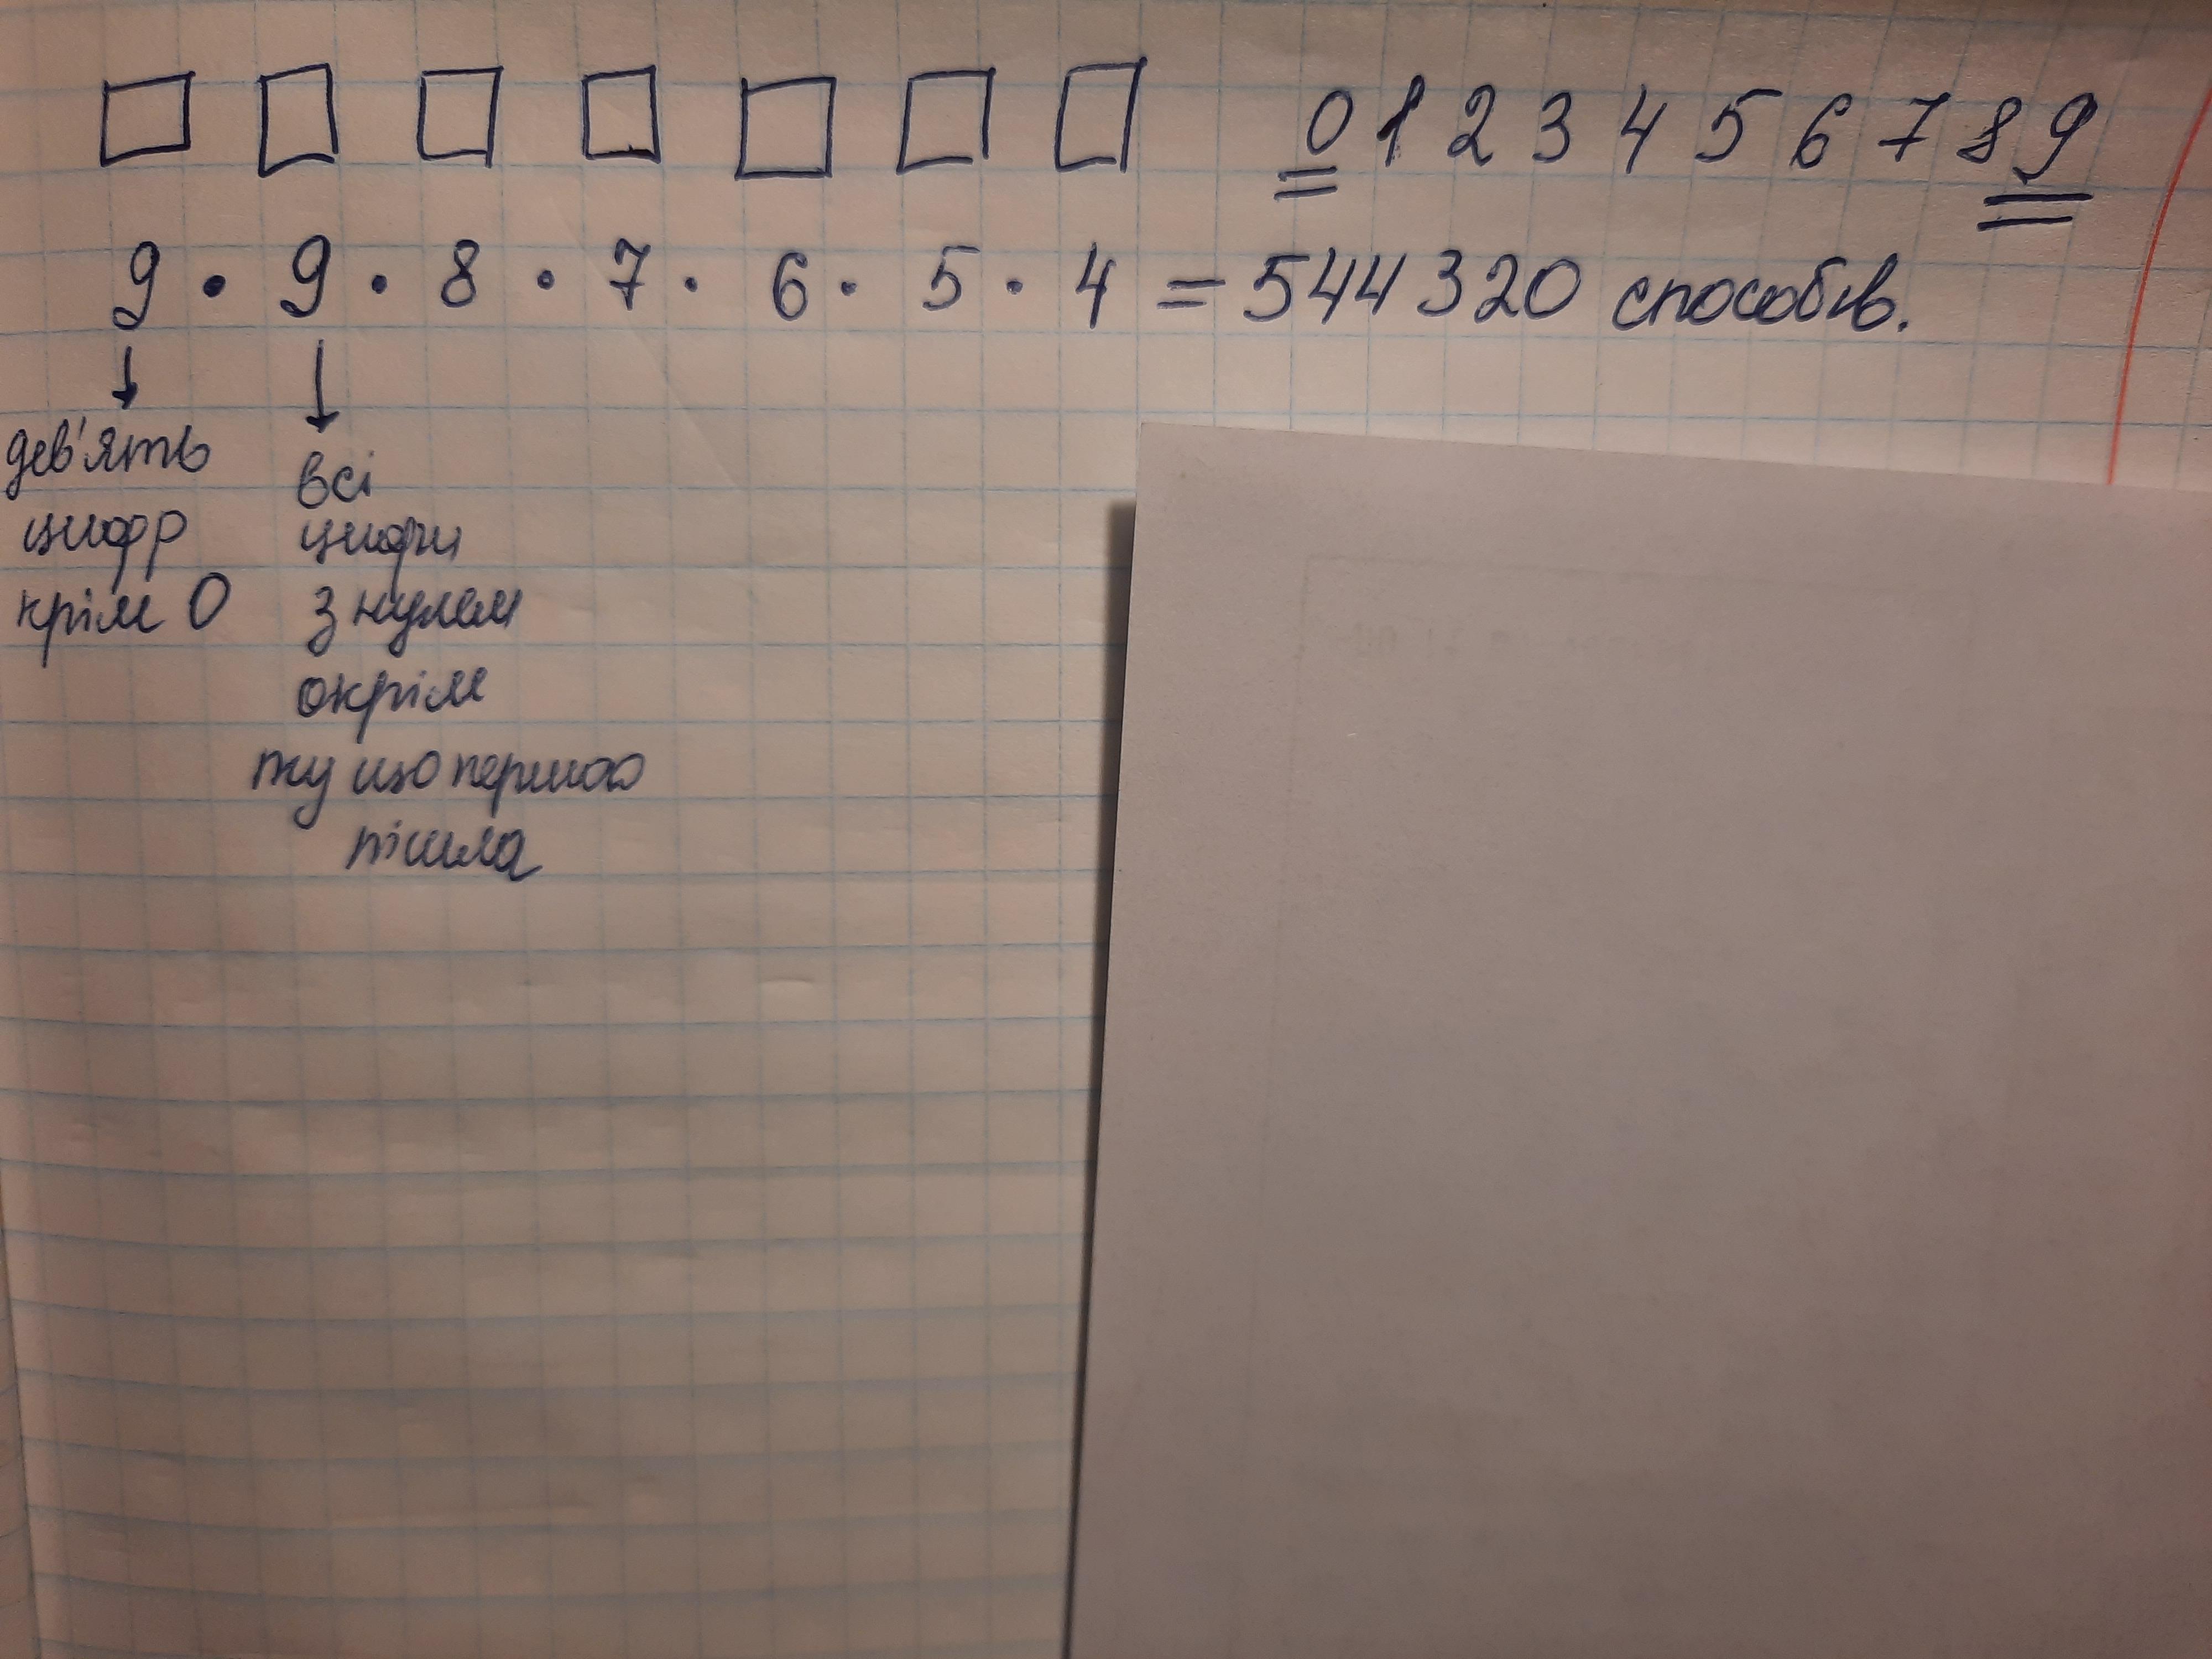 0 1 2 3 4 5 6 7 8 9
9 · 9 · 8 · 7 · 6 · 5 · 4 = 544 320 способів.
дев'ять
цифр
крім 0
всі
цифри
з нулем
окрім
ту що першою
пішла